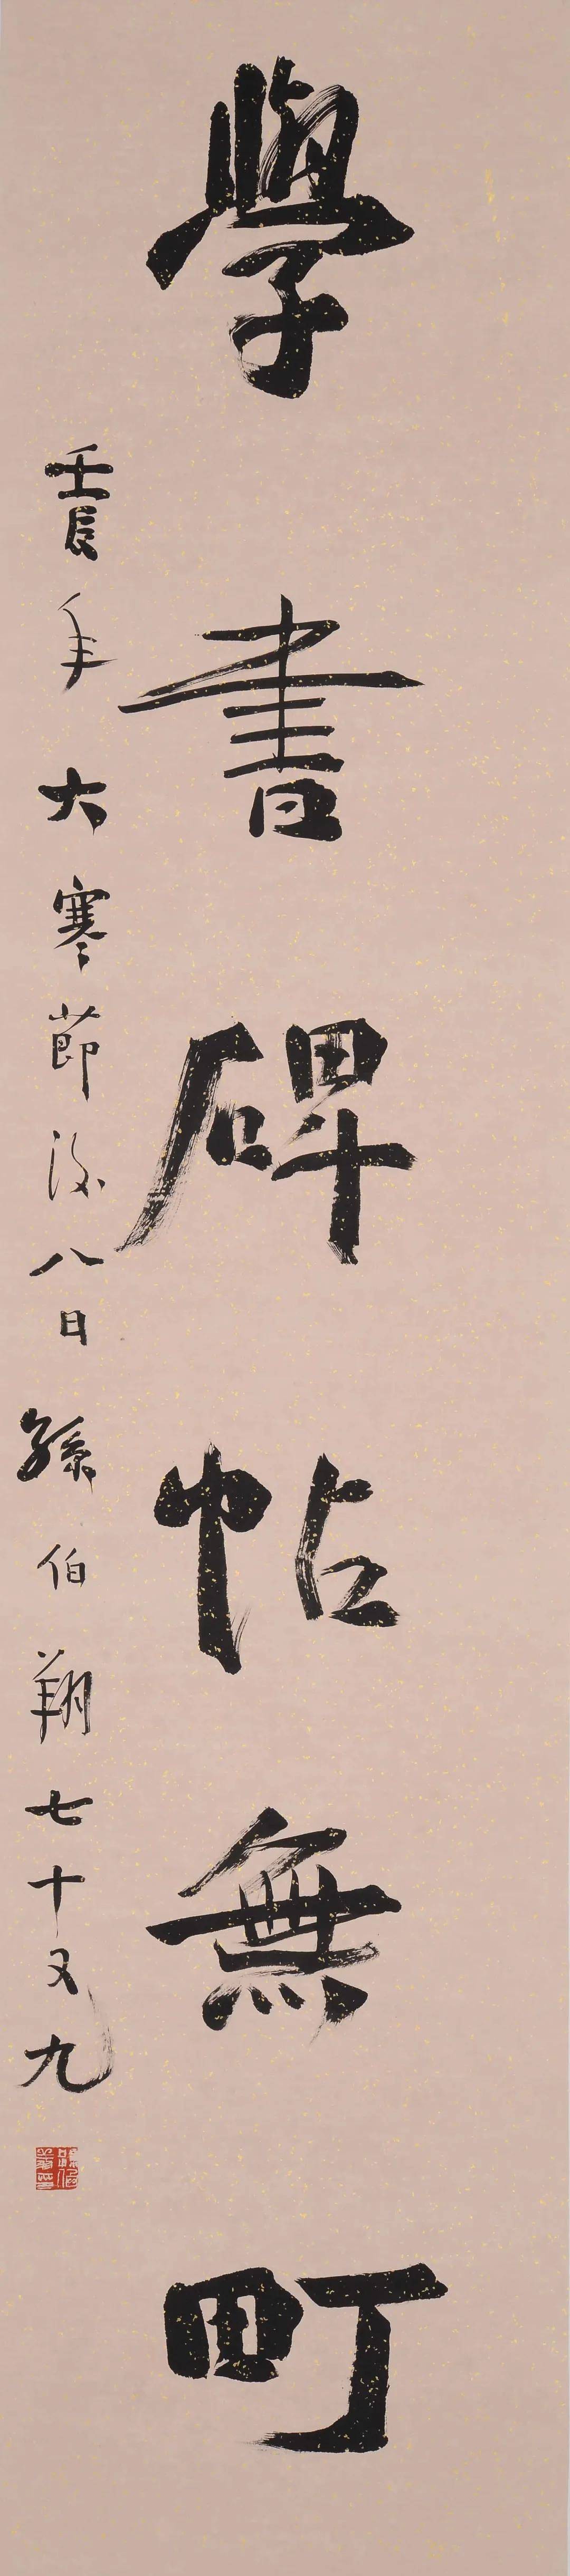 學書碑帖無町
壬辰年大寒節後八日孫伯翔七十又九